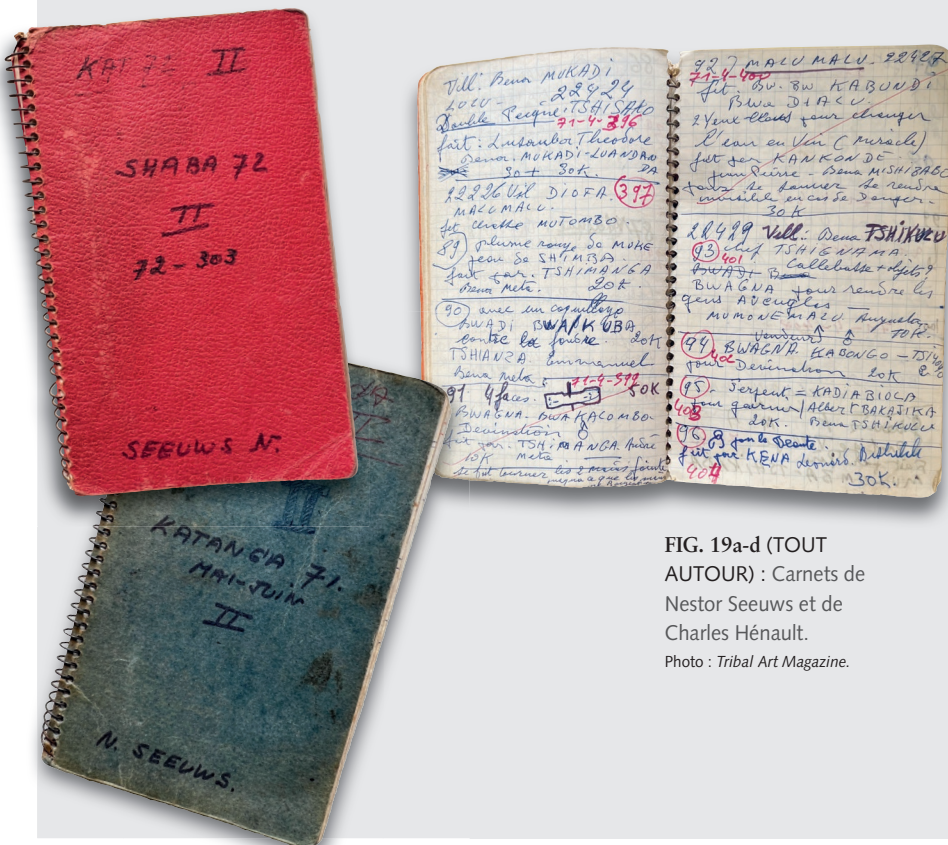 KAI 72 II
SHABA 72
II
72-303
SEEUWS N.
II
KATANGA 71.
MAI-JUIN
II
N. SEEUWS.
Vill. Bena MUKADI
LULU - 22424
Double Peigne: TSHISAKO
71-4-396
fait: Lusamba Theodore
Bena. MUKADI-LUANDA
30K
22226 Vill DIOFA 397
MALUMALU.
fet chasse MUTOMBO.
89) plume rouge de MOKE
peau de SHIMBA.
fait par. TSHIMANGA
Bena Meta. 20K
90) avec un coquillage
BWADI BWA KUBA
contre la foudre. 20K
TSHIANZA. Emmanuel
Bena Meta
91 4 faces. 50K
BWAGNA. BWA KALOMBO
Devination
fait par. TSHIMANGA. André
Meta
se fait tourner les 2 mains
92) MALU MALU. 22427
71-4-400
fet. Bw. BW KABUNDI
BWa DIALU.
2 Yeux blancs pour changer
l'eau en Vin (miracle)
fet par KANKONDE
Jean Pierre - Bena MISHIBABO
pour se sauver se rendre
invisible en cas de Danger.
30K
22429 Vill. Bena TSHIKULU
93 chef TSHIGNAMA
401
BWADI Callebasse + objets
BWAGNA pour rendre les
gens AVEUGLES
MUMONEMALU Augustin
vendeur 70K.
94 BWAGNA KABONGO
402 pour Devination 20K
95. Serpent = KADIABIOLA
pour guerrir Albert BAKAJIKA
403 20K. Bena TSHIKULU
96
fet par KENA Leonard.
404 30K.
FIG. 19a-d (TOUT
AUTOUR) : Carnets de
Nestor Seeuws et de
Charles Hénault.
Photo : Tribal Art Magazine.